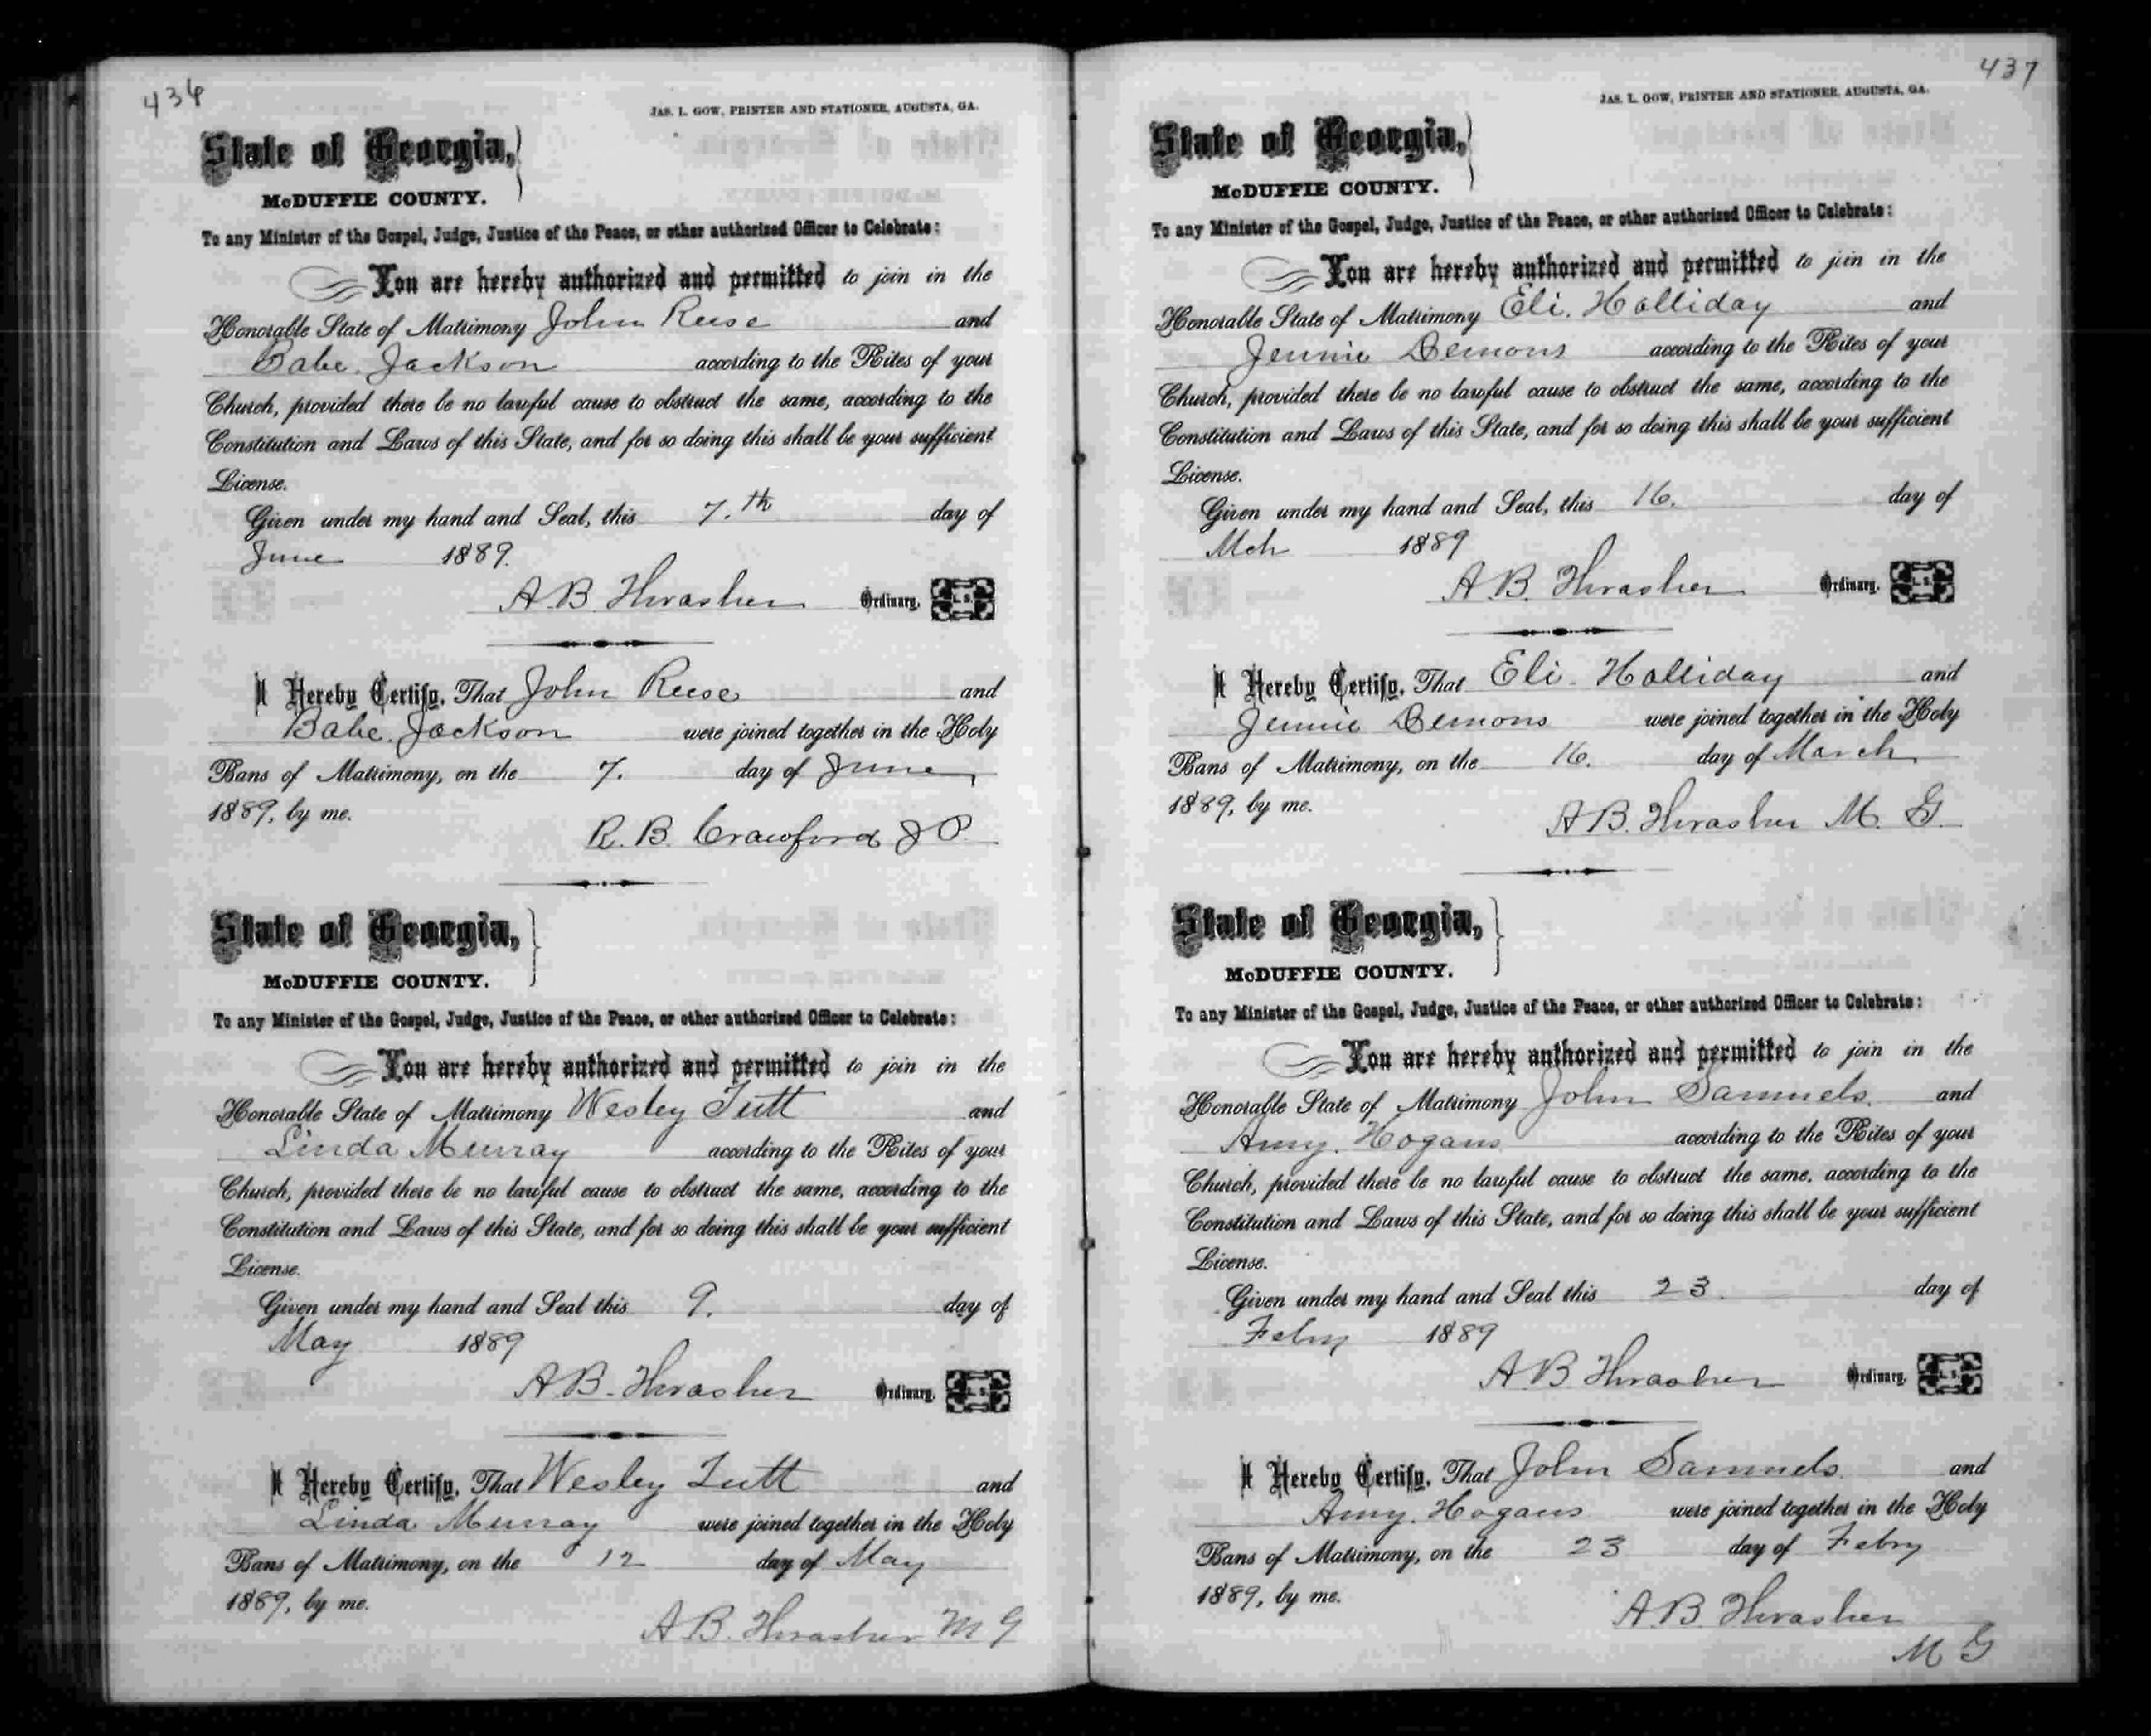 436
JAS. L. GOW, PRINTER AND STATIONER, AUGUSTA, GA.
State of Georgia,
McDUFFIE COUNTY.
To any Minister of the Gospel, Judge, Justice of the Peace, or other authorized Officer to Celebrate:
You are hereby authorized and permitted to join in the
Honorable State of Matrimony John Reese and
Babe Jackson according to the Rites of your
Church, provided there be no lawful cause to obstruct the same, according to the
Constitution and Laws of this State, and for so doing this shall be your sufficient
License.
Given under my hand and Seal, this 7.th day of
June 1889.
A.B. Thrasher Ordinary. L. S.
I Hereby Certify, That John Reese and
Babe Jackson were joined together in the Holy
Bans of Matrimony, on the 7. day of June
1889, by me.
R. B. Crawford J P.
State of Georgia,
McDUFFIE COUNTY.
To any Minister of the Gospel, Judge, Justice of the Peace, or other authorized Officer to Celebrate:
You are hereby authorized and permitted to join in the
Honorable State of Matrimony Wesley Tutt and
Linda Murray according to the Rites of your
Church, provided there be no lawful cause to obstruct the same, according to the
Constitution and Laws of this State, and for so doing this shall be your sufficient
License.
Given under my hand and Seal this 9. day of
May 1889
A B. Thrasher Ordinary. L. S.
I Hereby Certify, That Wesley Tutt and
Linda Murray were joined together in the Holy
Bans of Matrimony, on the 12 day of May
1889, by me.
A B. Thrasher M G
437
JAS. L. GOW, PRINTER AND STATIONER, AUGUSTA, GA.
State of Georgia,
McDUFFIE COUNTY.
To any Minister of the Gospel, Judge, Justice of the Peace, or other authorized Officer to Celebrate:
You are hereby authorized and permitted to join in the
Honorable State of Matrimony Eli. Holliday and
Jennie Demons according to the Rites of your
Church, provided there be no lawful cause to obstruct the same, according to the
Constitution and Laws of this State, and for so doing this shall be your sufficient
License.
Given under my hand and Seal, this 16. day of
Mch 1889
A B. Thrasher Ordinary. L. S.
I Hereby Certify, That Eli. Holliday and
Jennie Demons were joined together in the Holy
Bans of Matrimony, on the 16. day of March
1889, by me.
A B. Thrasher M. G.
State of Georgia,
McDUFFIE COUNTY.
To any Minister of the Gospel, Judge, Justice of the Peace, or other authorized Officer to Celebrate:
You are hereby authorized and permitted to join in the
Honorable State of Matrimony John Samuels. and
Amy. Hogans according to the Rites of your
Church, provided there be no lawful cause to obstruct the same, according to the
Constitution and Laws of this State, and for so doing this shall be your sufficient
License.
Given under my hand and Seal this 23 day of
Febry 1889
A B Thrasher Ordinary. L. S.
I Hereby Certify, That John Samuels. and
Amy. Hogans were joined together in the Holy
Bans of Matrimony, on the 23 day of Febry
1889, by me.
A B Thrasher
M G